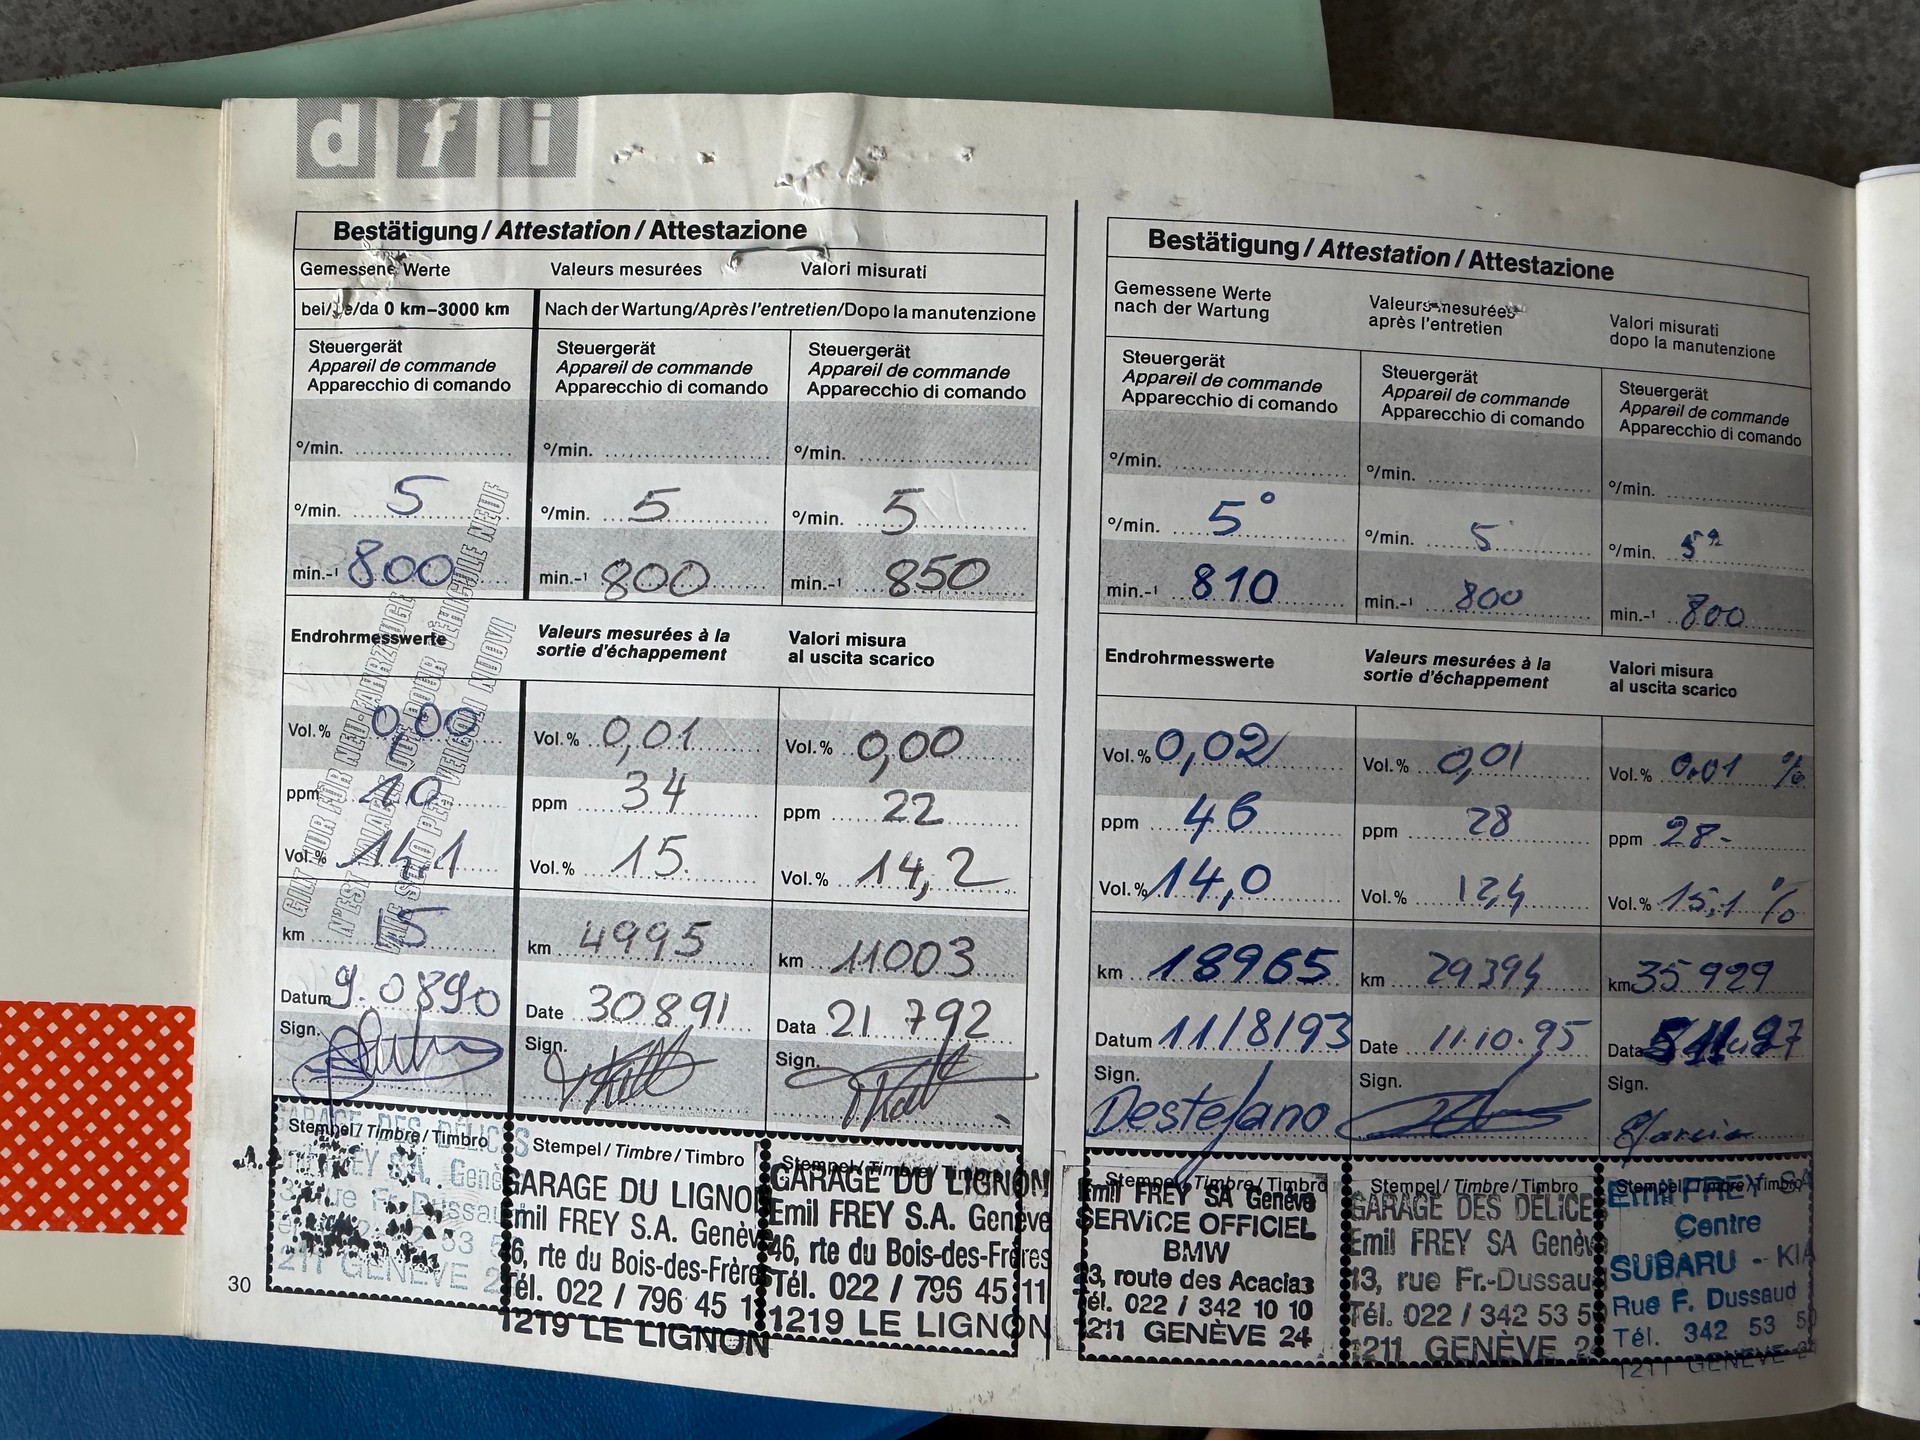 d f i
Bestätigung / Attestation / Attestazione
Gemessene Werte Valeurs mesurées Valori misurati
0 km–3000 km Nach der Wartung/Après l'entretien/Dopo la manutenzione
Steuergerät Steuergerät Steuergerät
Appareil de commande Appareil de commande Appareil de commande
Apparecchio di comando Apparecchio di comando Apparecchio di comando
°/min. °/min. °/min.
°/min. 5 °/min. 5 °/min. 5
min.-¹ 800 min.-¹ 800 min.-¹ 850
Endrohrmesswerte Valeurs mesurées à la sortie d'échappement Valori misura al uscita scarico
Vol.% 0,00 Vol.% 0,01 Vol.% 0,00
ppm 10 ppm 34 ppm 22
Vol.% 14,1 Vol.% 15. Vol.% 14,2
km 15 km 4995 km 11003
Datum 9.0890 Date 30891 Data 21 792
Sign. Sign. Sign.
Stempel / Timbre / Timbro Stempel / Timbre / Timbro Stempel / Timbre / Timbro
GARAGE DES DÉLICES
211 GENÈVE
GARAGE DU LIGNON
Emil FREY S.A. Genève
46, rte du Bois-des-Frères
Tél. 022 / 796 45 1
1219 LE LIGNON
GARAGE DU LIGNON
Emil FREY S.A. Genève
46, rte du Bois-des-Frères
Tél. 022 / 796 45 11
1219 LE LIGNON
GILT NUR FÜR NEU-FAHRZEUGE
N'EST VALABLE QUE POUR VÉHICULE NEUF
VALE SOLO PER VEICOLI NUOVI
30
Bestätigung / Attestation / Attestazione
Gemessene Werte nach der Wartung Valeurs mesurées après l'entretien Valori misurati dopo la manutenzione
Steuergerät Steuergerät Steuergerät
Appareil de commande Appareil de commande Appareil de commande
Apparecchio di comando Apparecchio di comando Apparecchio di comando
°/min. °/min. °/min.
°/min. 5° °/min. 5 °/min. 5
min.-¹ 810 min.-¹ 800 min.-¹ 800
Endrohrmesswerte Valeurs mesurées à la sortie d'échappement Valori misura al uscita scarico
Vol.% 0,02 Vol.% 0,01 Vol.% 0,01 %
ppm 46 ppm 28 ppm 28-
Vol.% 14,0 Vol.% Vol.% 15,1 %
km 18965 km 29394 km 35929
Datum 11/8/93 Date 11.10.95 Data
Sign. Sign. Sign.
Destefano Garcia
Stempel / Timbre / Timbro Stempel / Timbre / Timbro Stempel / Timbre / Timbro
Emil FREY SA Genève
SERViCE OFFiCiEL
BMW
23, route des Acacias
Tél. 022 / 342 10 10
1211 GENÈVE 24
GARAGE DES DÉLICE
Emil FREY SA Genèv
13, rue Fr.-Dussau
Tél. 022 / 342 53 5
1211 GENÈVE 2
Emil FREY SA
Centre
SUBARU - KIA
Rue F. Dussaud
Tél. 342 53 5
1211 GENEVE 2